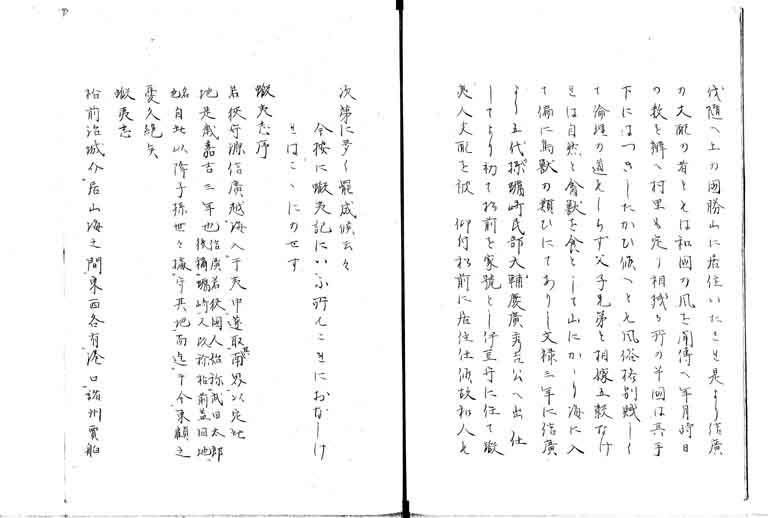 伐随へ上の国勝山に居住いたさせ是より信廣
の支配の者ともは和国の風を聞傳へ年月時日
の数を辨へ村里を定り相撲り所の半国は其手
下にはつきしたかひ傾へとも風俗格別賤しく
て倫理の道をしらず父子兄弟を相嫁五穀なけ
れは自然と禽獣を食として山にかゝり海に入
て偏に鳥獣の類ひにてありし文禄三年に信廣
より五代孫蠣崎民部大輔慶廣秀吉公へ出仕
してより初て松前を家號とし伊豆守に任て蝦
夷人支配を被 仰付松前に居住仕候故和人も
次第に多く罷成候云々
今按に蝦夷記にいふ所もこれにおなしけ
れはこゝにのせす
蝦夷志序
若狭守源信廣越海入于夷中遂取其南界以定北
地是歳嘉吉三年也信廣若狭國人始称武田太郎
後稱蠣崎人以称松前蓋因地
名也自此以降子孫世々據守其地而迄于今東顧之
憂久絶矣
蝦夷志
松前治城介居山海之間東西各有港口諸州賈舶